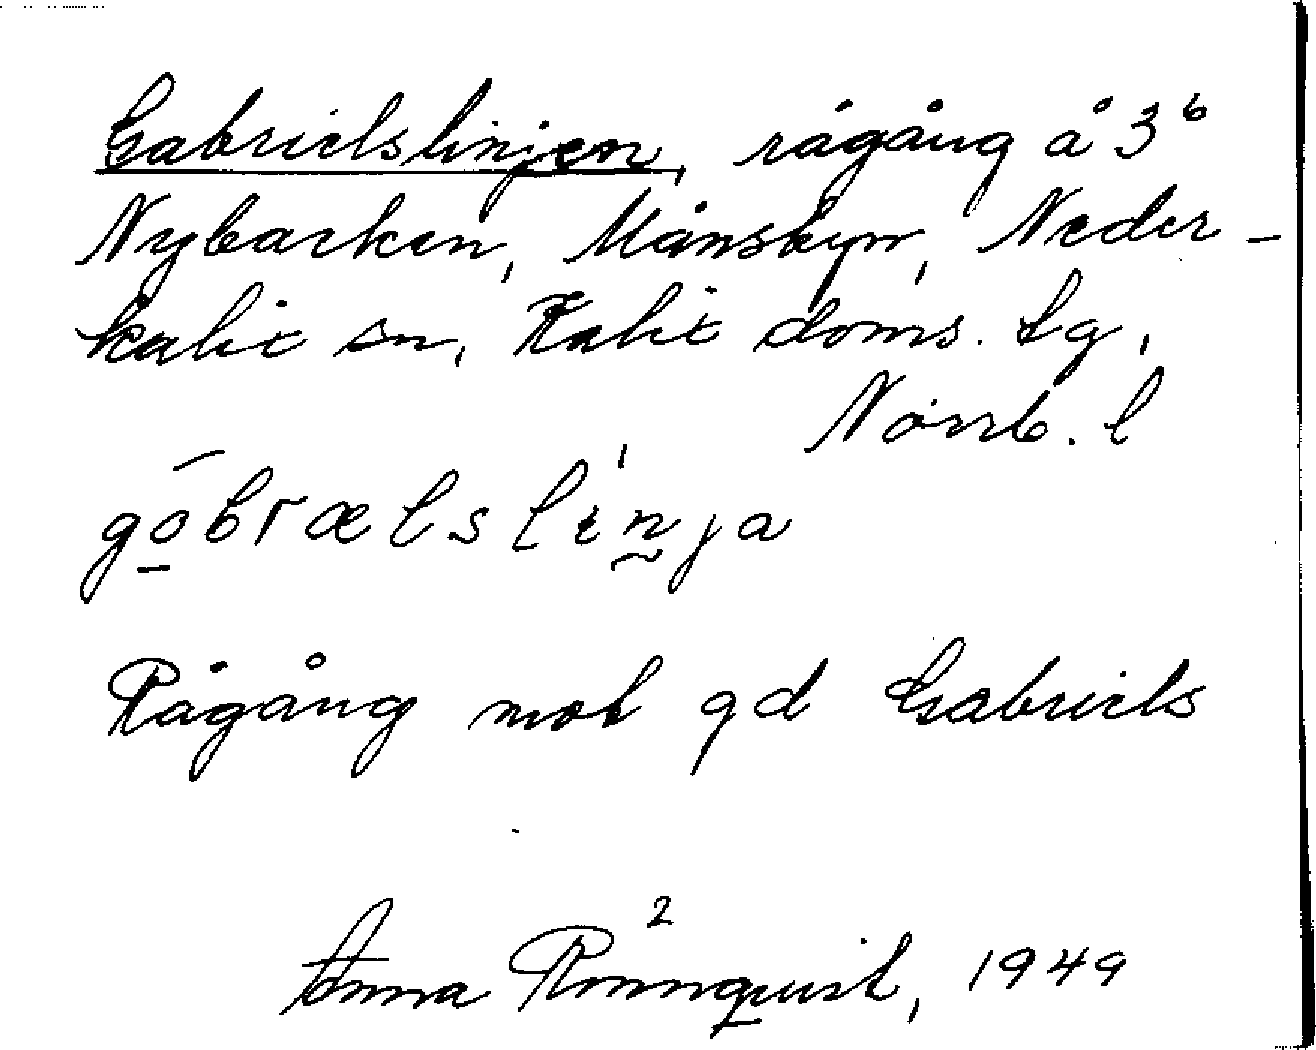 Gabrielslinjen, rågång å 3⁶
Nybacken, Månsbyn, Neder-
kalix sn, Kalix doms. tg,
Norrb. l
gōbrælslɩnja
Rågång mot gd Gabriels
2
Anna Rönnquist, 1949